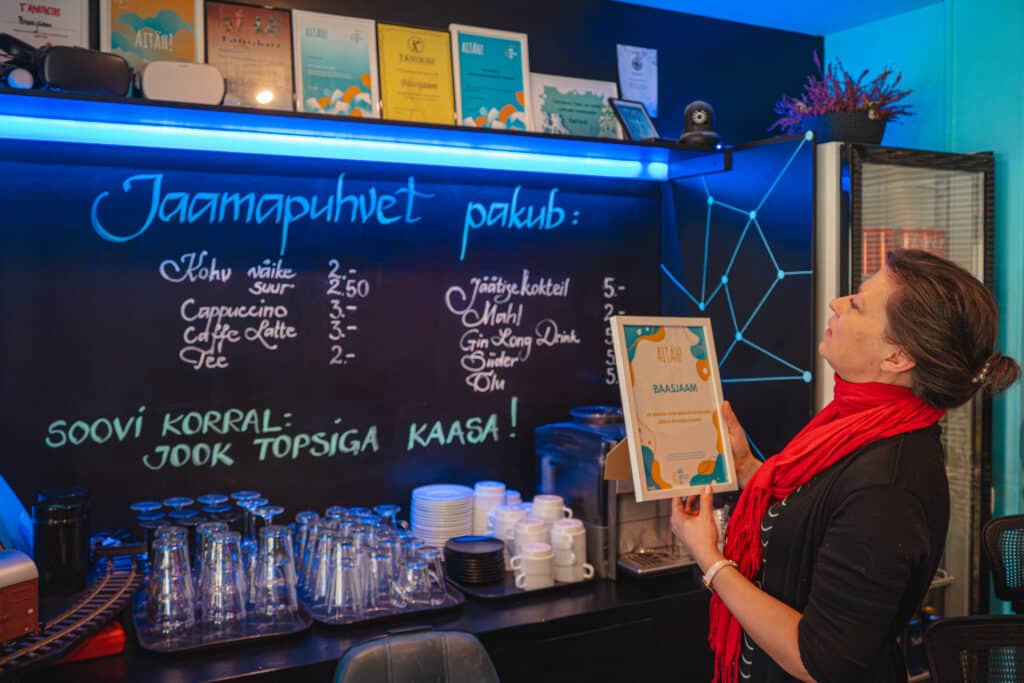 TÄNUKIRI
AITÄH!
Tänukiri
AITÄH!
TÄNUKIRI
AITÄH!
Jaamapuhvet pakub:
Kohv väike 2.-
suur 2.50
Cappuccino 3.-
Caffe Latte 3.-
Tee 2.-
Jäätisekokteil 5.-
Mahl
Gin Long Drink
Siider
Õlu
SOOVI KORRAL:
JOOK TOPSIGA KAASA!
AITÄH!
BAASJAAM